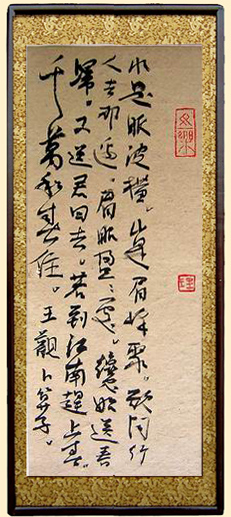 水是眼波横。山是眉峰聚。欲问行
人去那边。眉眼盈盈处。纔始送春
归。又送君归去。若到江南趕上春。
千萬和春住。王觀卜算子。